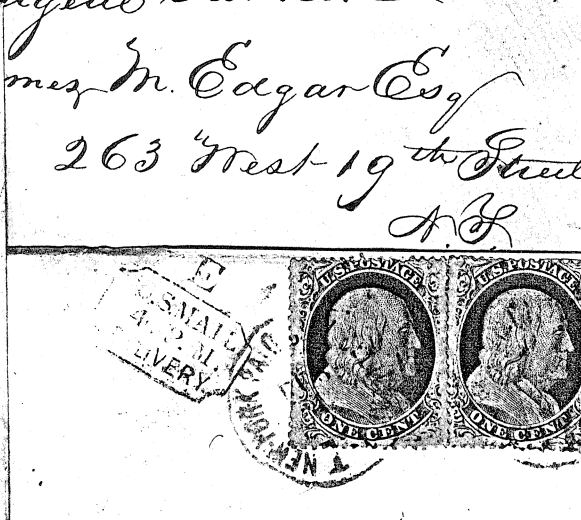 M. Edgar Esq
263 West 19th Street
N.Y.
E
U.S. MAIL
4 P.M.
DELIVERY
NEW YORK
U.S. POSTAGE
ONE CENT
U.S. POSTAGE
ONE CENT